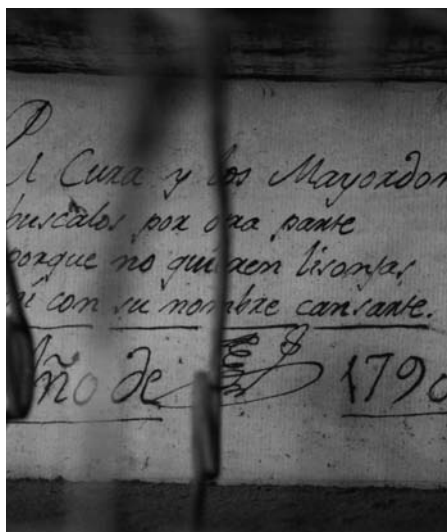 El Cura y los Mayordom
buscalos por otra parte
porque no quieren lisonjas
ni con su nombre cansarte.
Año de 1790